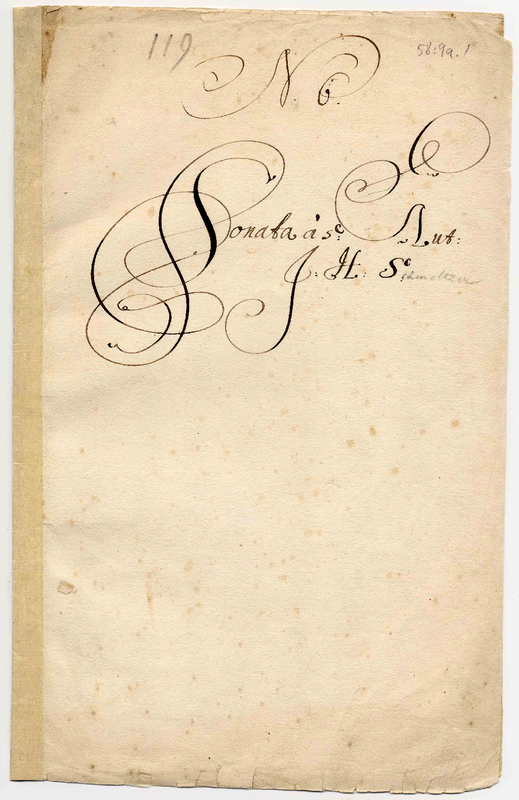 119
58:9a.1
N. 6.
Sonata à 5e: Aut:
J: H: Se chmeltzer